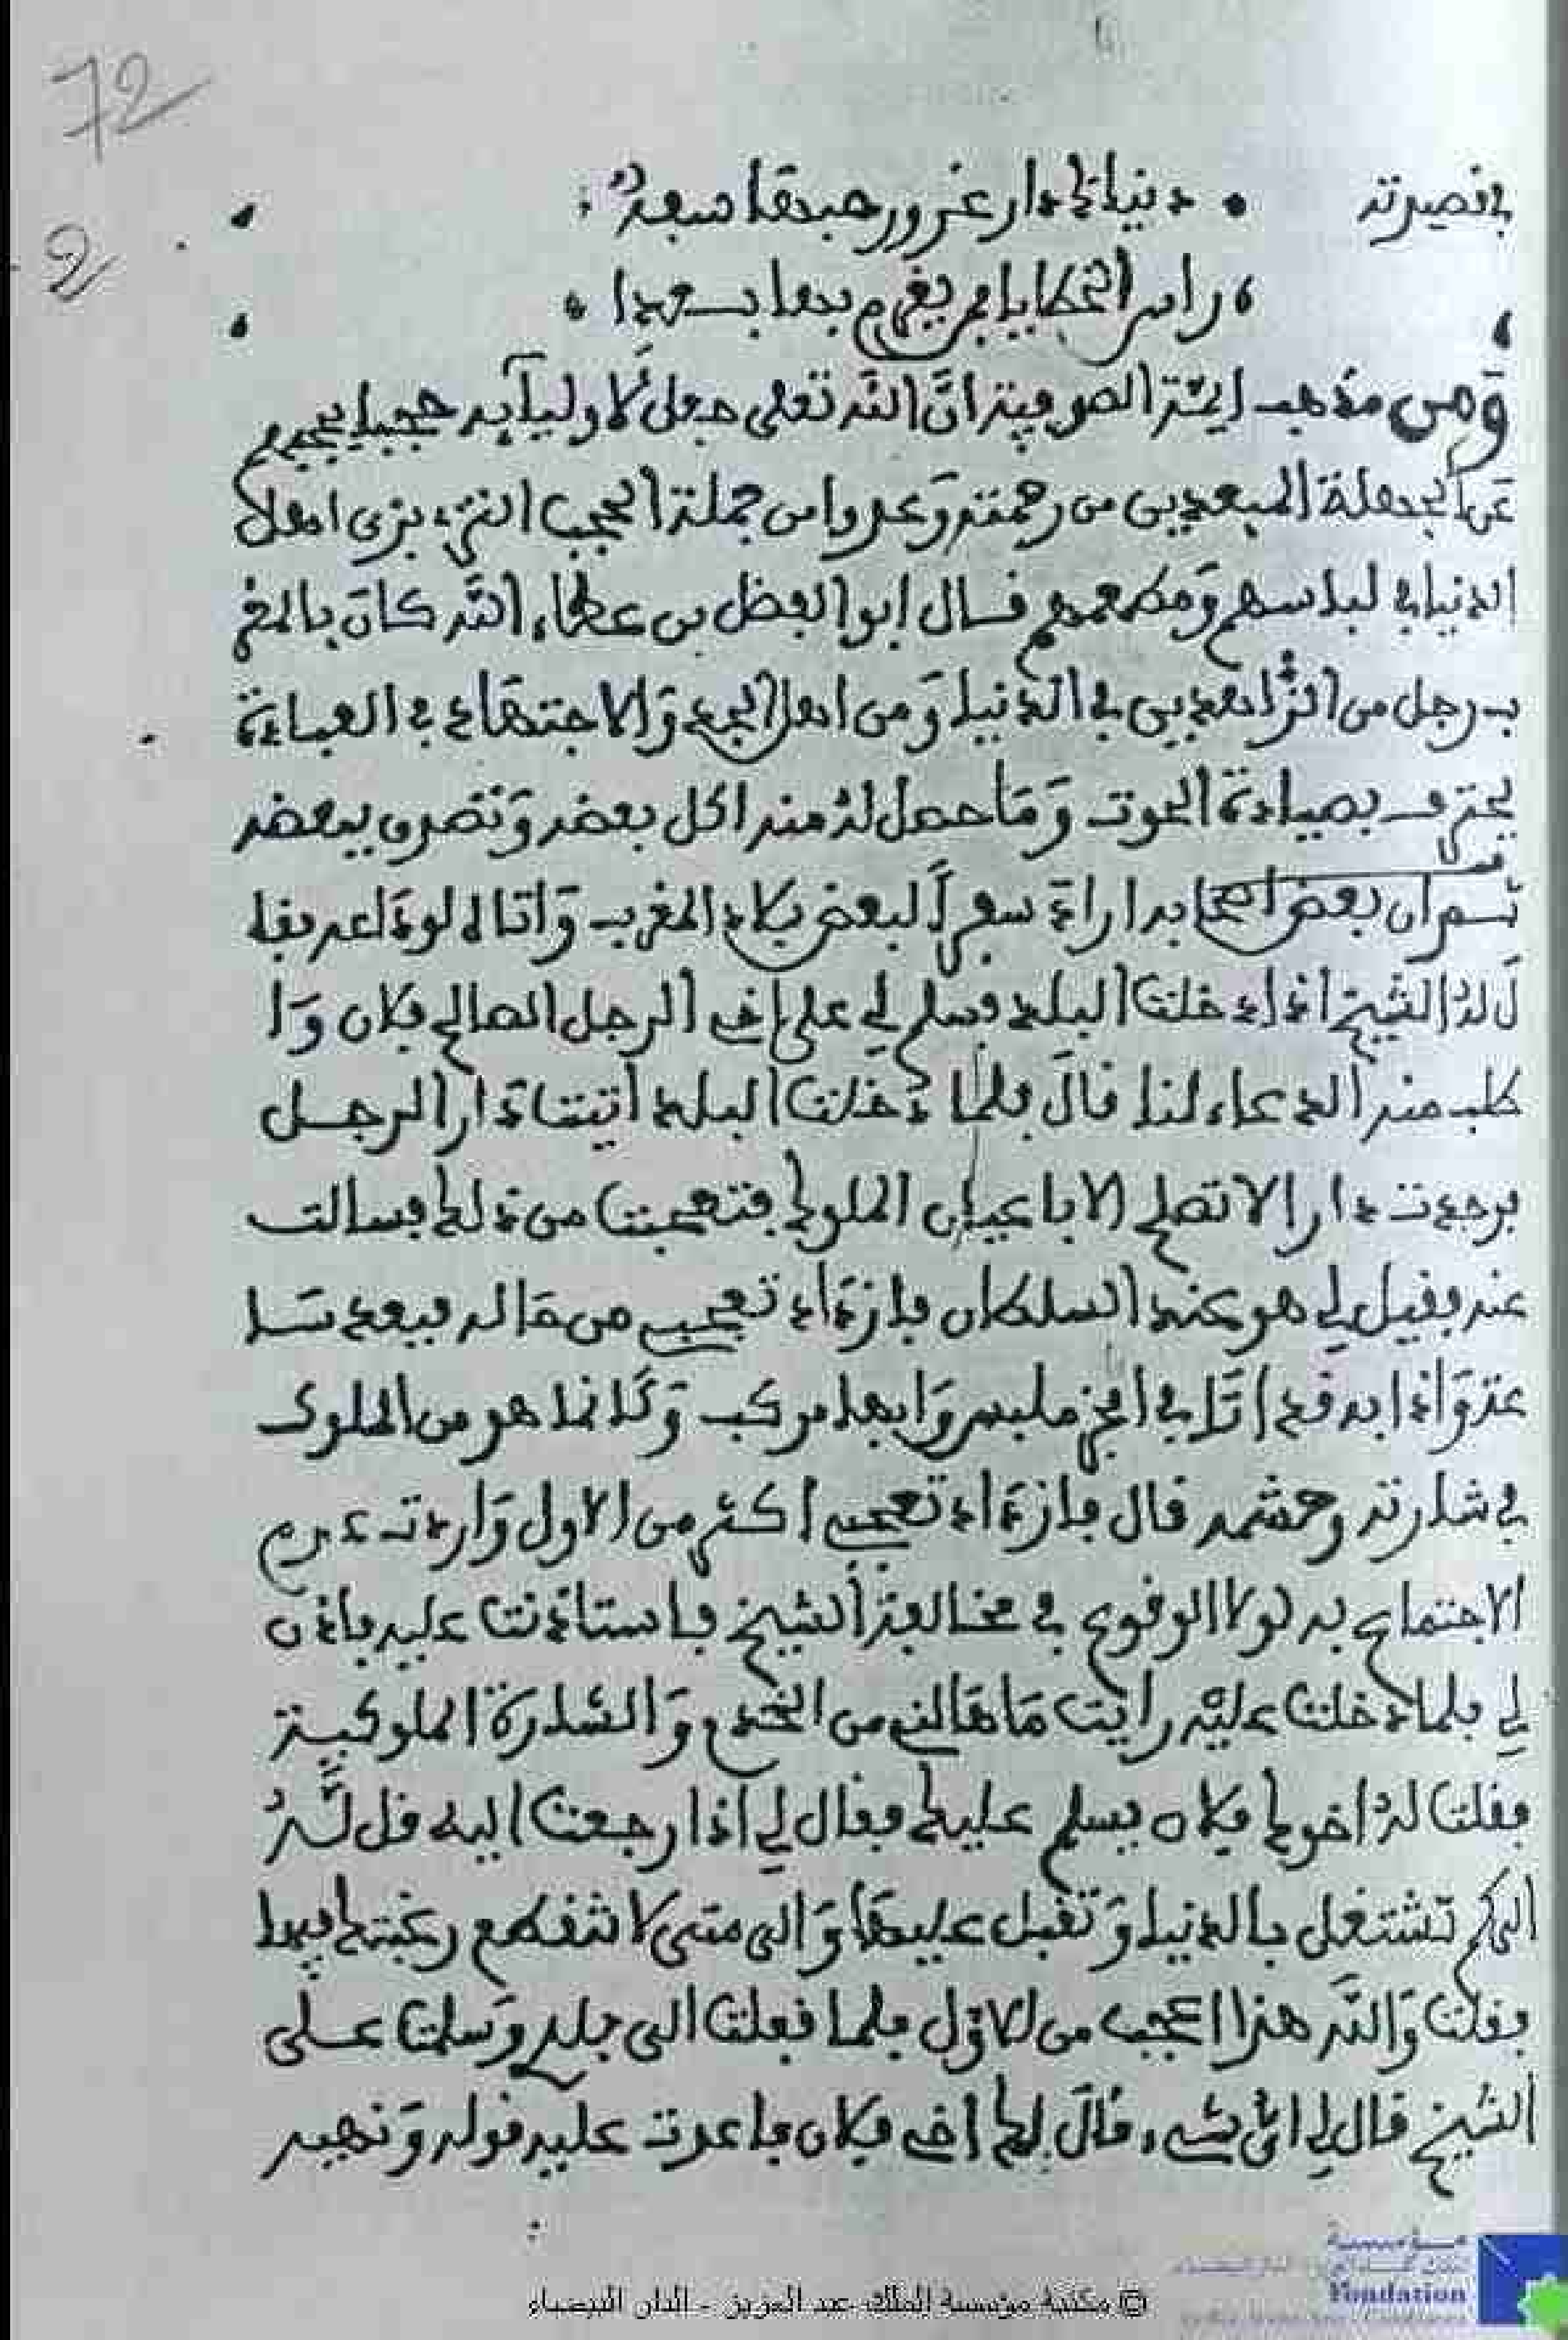 72
2
في قصيدته • دنياك دار غرور حبها سبه
راس الخطايا من يغرم بها بعدا
ومن مذهب ايمة الصوفية ان الله تعلى جعل لاوليآيه حجبا يحجبهم
عن الجهلة المبعدين من رحمته وعدوا من جملة الحجب التزيي بزي اهل
الدنيا في لباسهم ومطعمهم قال ابو الفضل بن عطاء الله كان بالمغر
ب رجل من الزاهدين في الدنيا ومن اهل الجد والاجتهاد في العبادة
يحترف بصيادة الحوت وما حصل له منه اكل بعضه وتصدق ببعضه
ثم ان بعض اصحابه اراد سفرا لبعض بلاد المغرب واتاه لوداعه فقا
ل له الشيخ اذا دخلت البلد فسلم لي على اخي الرجل الصالح فلان وا
طلب منه الدعاء لنا قال فلما دخلت البلد اتيت دار الرجل
فوجدت دارا لا تصلح الا باعيان الملوك فتعجبت من ذلك فسالت
عنه فقيل لي هو عند السلطان فازداد تعجبي من حاله فبعد سا
عة واذا به قد اتى في افخر ملبس وابها مركب وكانما هو من الملوك
في شارته وحشمه قال فازداد تعجبي اكثر من الاول واردت عدم
الاجتماع به لولا الوقوع في مخالفة الشيخ فاستاذنت عليه فاذن
لي فلما دخلت عليه رايت ما هالني من الخدم والشارة الملوكية
فقلت له اخوك فلان يسلم عليك فقال لي اذا رجعت اليه قل له
الى كم تشتغل بالدنيا وتقبل عليها والى متى لا تنقطع رغبتك فيها
فقلت والله هذا اعجب من الاول فلما قفلت الى بلدي وسلمت على
الشيخ قال لي اي شيء قال لك اخي فلان فاعدت عليه قوله ونهيه
© مكتبة مؤسسة الملك عبد العزيز - الدار البيضاء
مؤسسة
Fondation